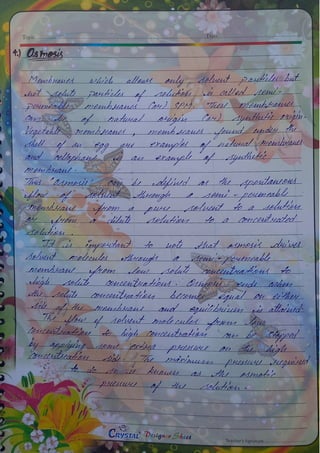 Topic Date
4.) Osmosis
Membranes which allows only solvent particles but
not solute particles of solution is called semi-
permeable membranes (or) SPM. These membranes
can be of natural origin (or) synthetic origin
vegetable membranes, membranes found under the
shell of an egg are examples of natural membranes
and cellophane is an example of synthetic
membrane.
Thus Osmosis can be defined as the spontaneous
flow of solvent through a semi-permeable
membrane from a pure solvent to a solution
or from a dilute solution to a concentrated
solution.
It is important to note that osmosis drives
solvent molecules through a semi-permeable
membrane from low solute concentrations to
high solute concentrations. Osmosis ends when
the solute concentrations become equal on either
side of the membrane and equilibrium is attained.
The flow of solvent molecules from low
concentration to high concentration can be stopped
by applying some extra pressure on the high
concentration side. The maximum pressure required
to do so is known as the osmotic
pressure of the solution.
CRYSTAL Designer Sheet
Teacher's Signature